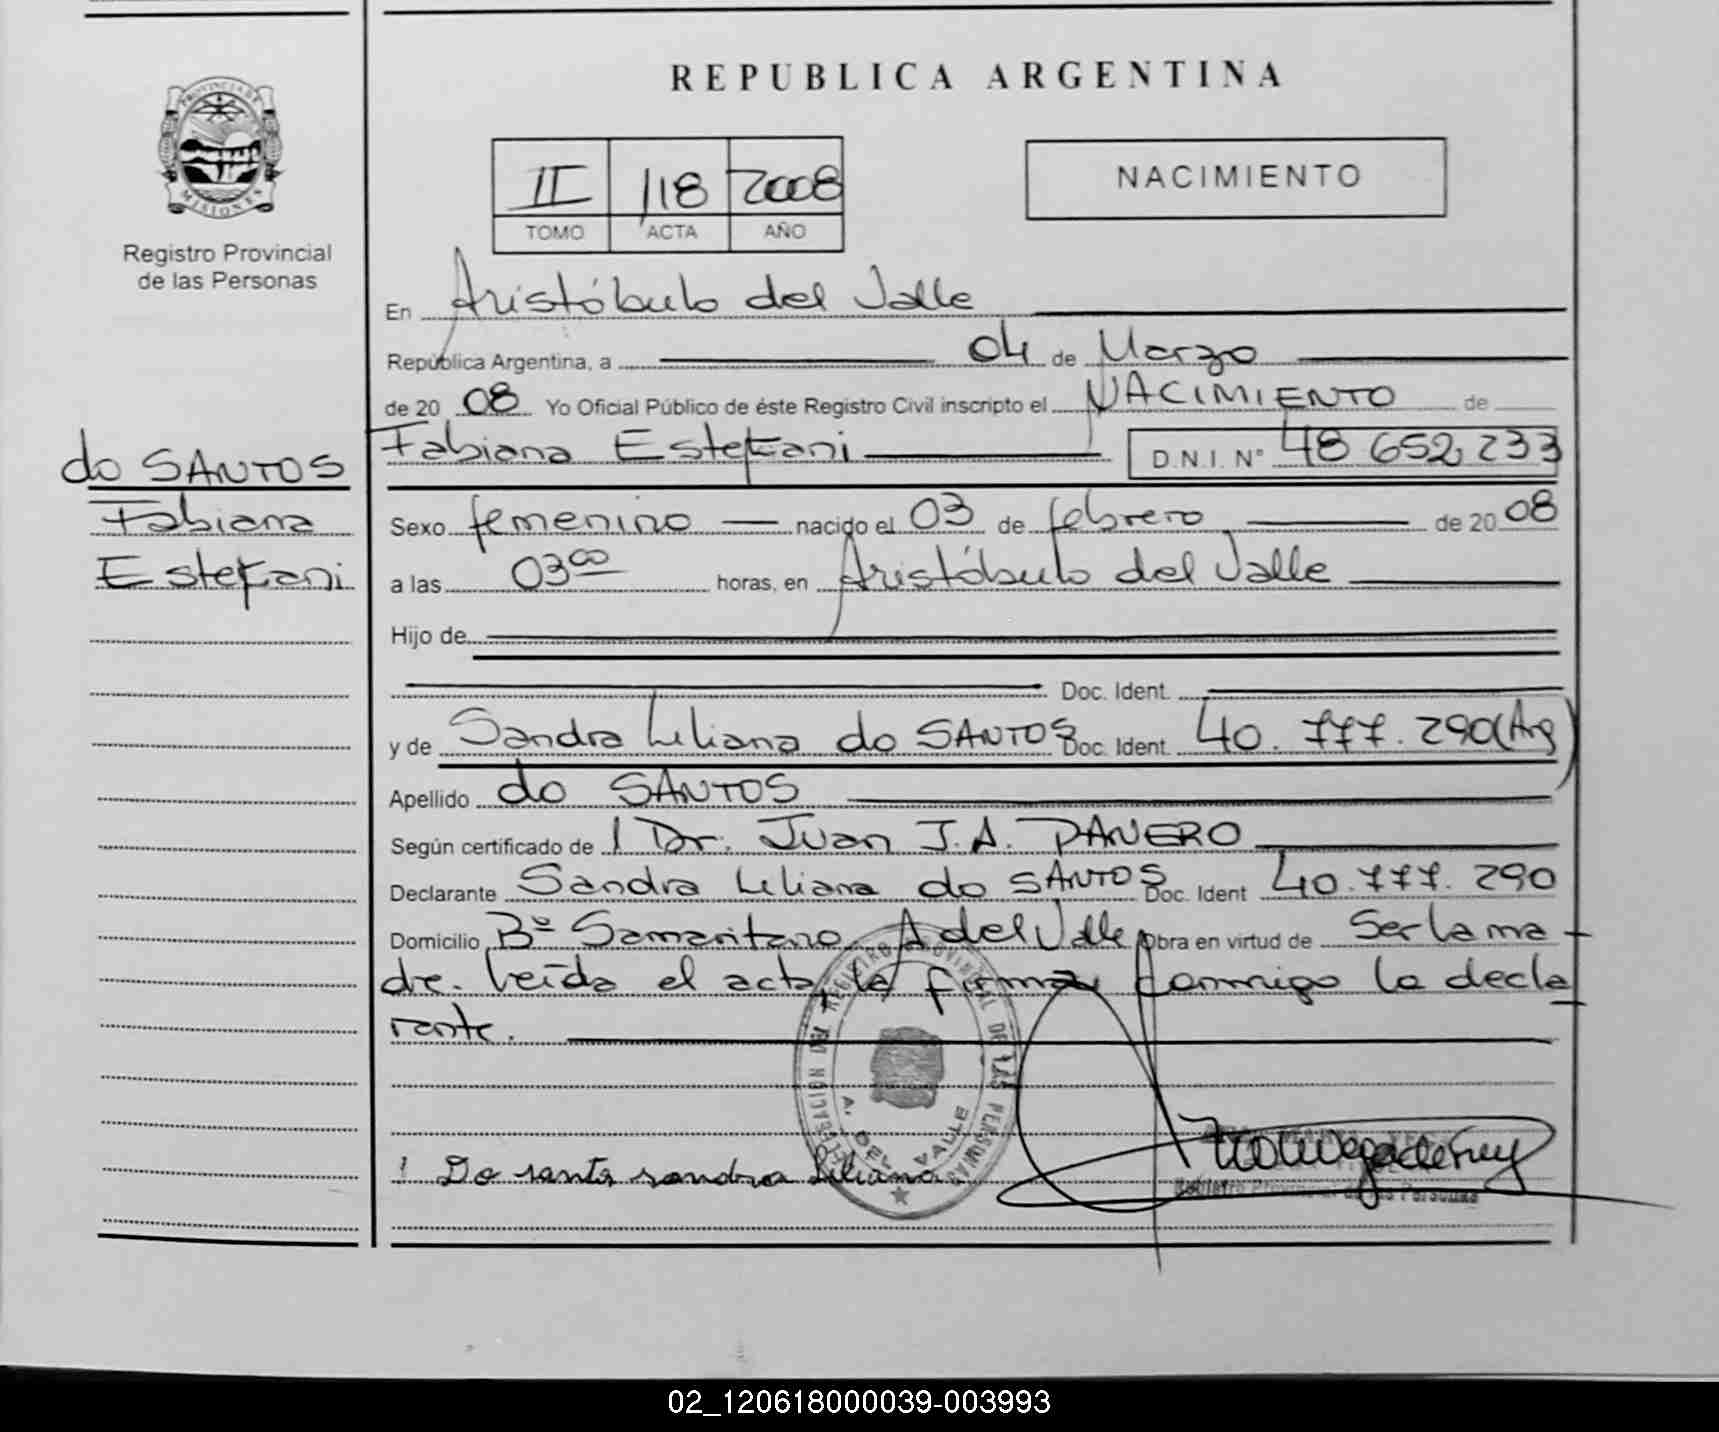 REPUBLICA ARGENTINA
PROVINCIA DE MISIONES
Registro Provincial
de las Personas
II 118 2008
TOMO ACTA AÑO
NACIMIENTO
En Aristóbulo del Valle
República Argentina, a 04 de Marzo
de 20 08 Yo Oficial Público de éste Registro Civil inscripto el NACIMIENTO de
Fabiana Estefani D.N.I. N° 48 652 233
do SANTOS
Fabiana
Estefani
Sexo femenino nacido el 03 de febrero de 20 08
a las 03 00 horas, en Aristóbulo del Valle
Hijo de
Doc. Ident.
y de Sandra Liliana do SANTOS Doc. Ident. 40.777.290 (Arg)
Apellido do SANTOS
Según certificado de 1 Dr. Juan J.A. PANERO
Declarante Sandra Liliana do SANTOS Doc. Ident 40.777.290
Domicilio B° Samaritano A del Valle Obra en virtud de Ser la ma-
dre. Leída el acta, la firma conmigo la decla
rante.
REGISTRO PROVINCIAL DE LAS PERSONAS
A. DEL VALLE
! Do santo sandra Liliana
Registro Provincial de las Personas
02_120618000039-003993